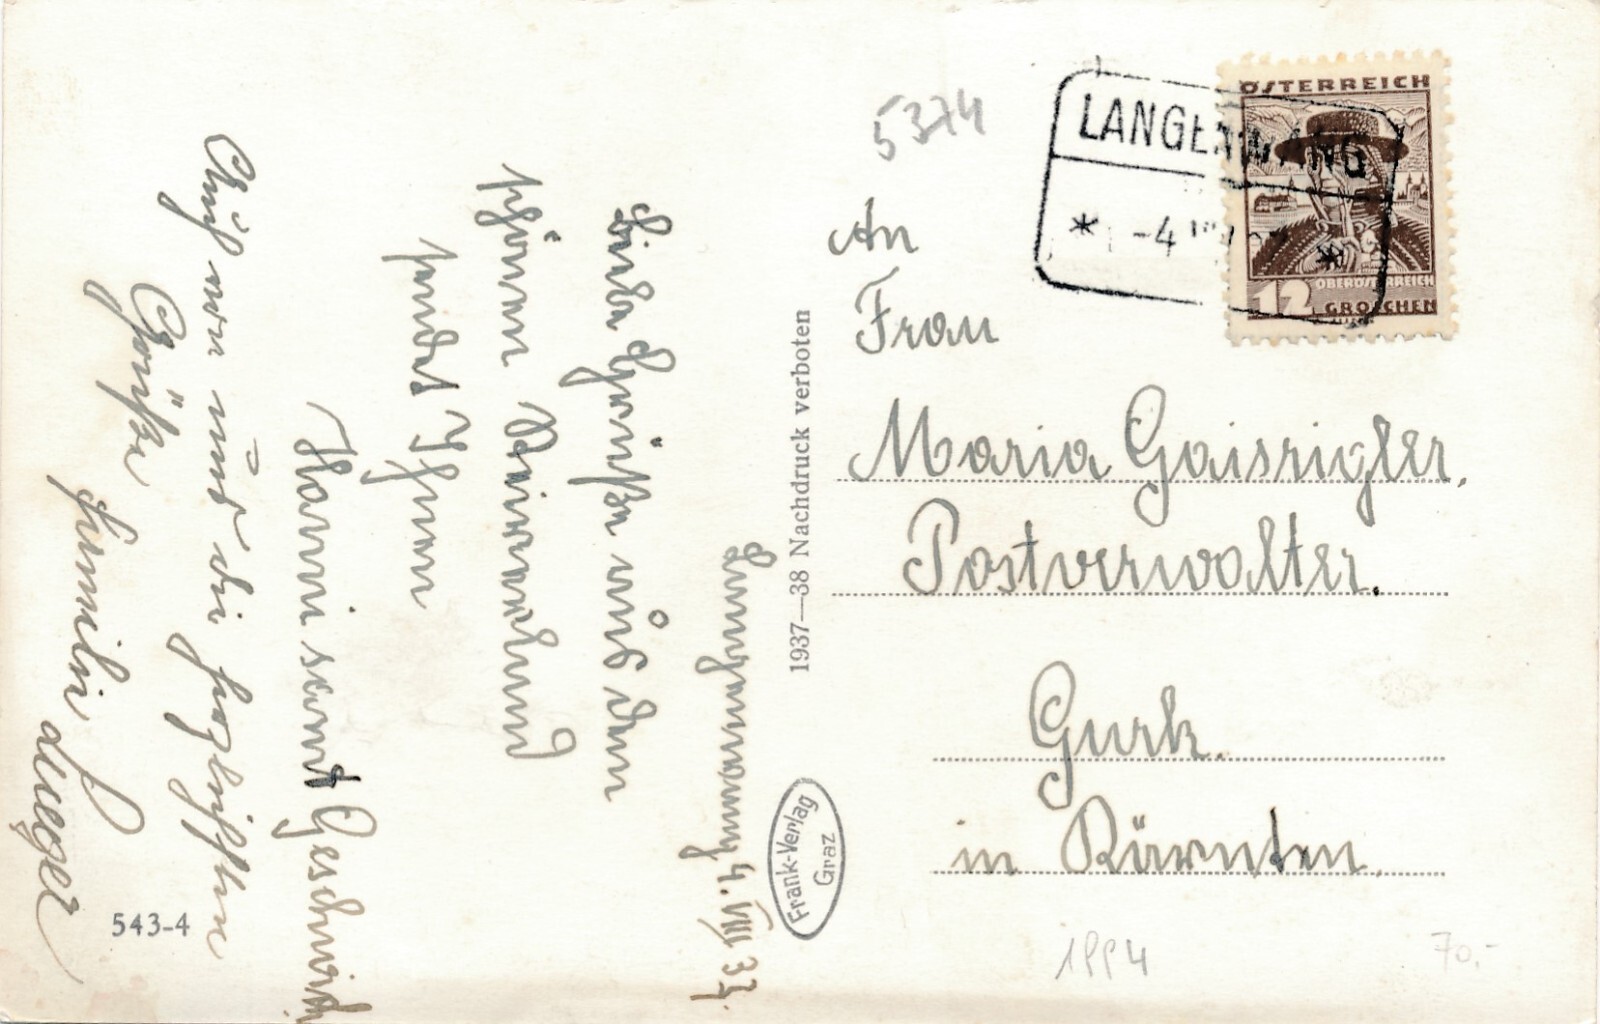 Langenwang, 4. VIII 37.
Liebe Grüße aus dem
schönen
sendet Ihnen
Hanni samt Geschwister
Auch von uns die herzlichsten
Grüße
Familie Lueger
543-4
1937—38 Nachdruck verboten
Frank-Verlag
Graz
5374
LANGENWANG
* -4 *
ÖSTERREICH
OBERÖSTERREICH
12 GROSCHEN
An
Frau
Maria Gaisrigler,
Postverwalter.
Gurk.
in Kärnten.
1994
70.-